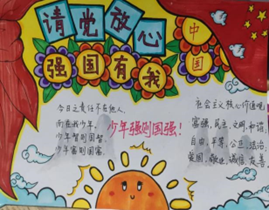 请党放心
中国
强国有我
今日之责任不在他人,
而在我少年,
少年智则国智
少年富则国富.
少年强则国强!
社会主义核心价值观
富强,民主,文明,和谐
自由,平等,公正,法治
爱国,敬业,诚信,友善